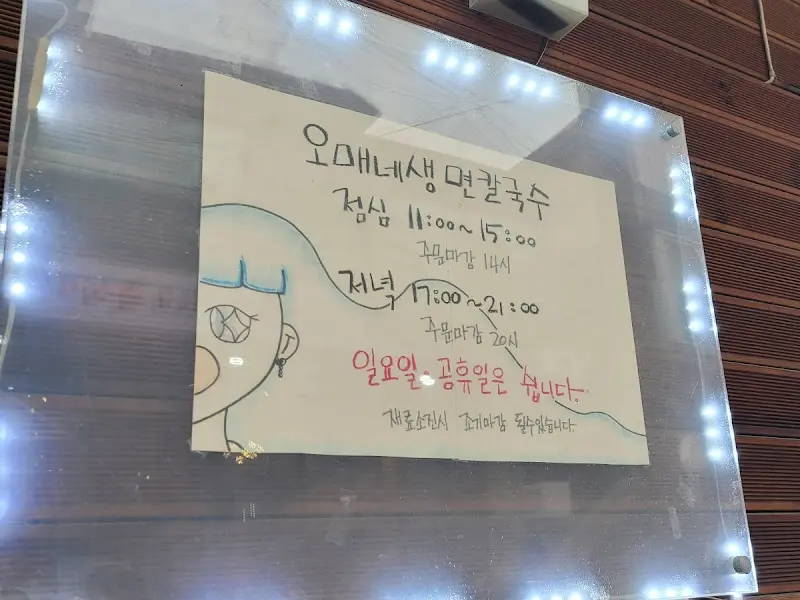 오매네생면칼국수
점심 11:00~15:00
주문마감 14시
저녁 17:00~21:00
주문마감 20시
일요일. 공휴일은 쉽니다.
재료소진시 조기마감 될수있습니다.